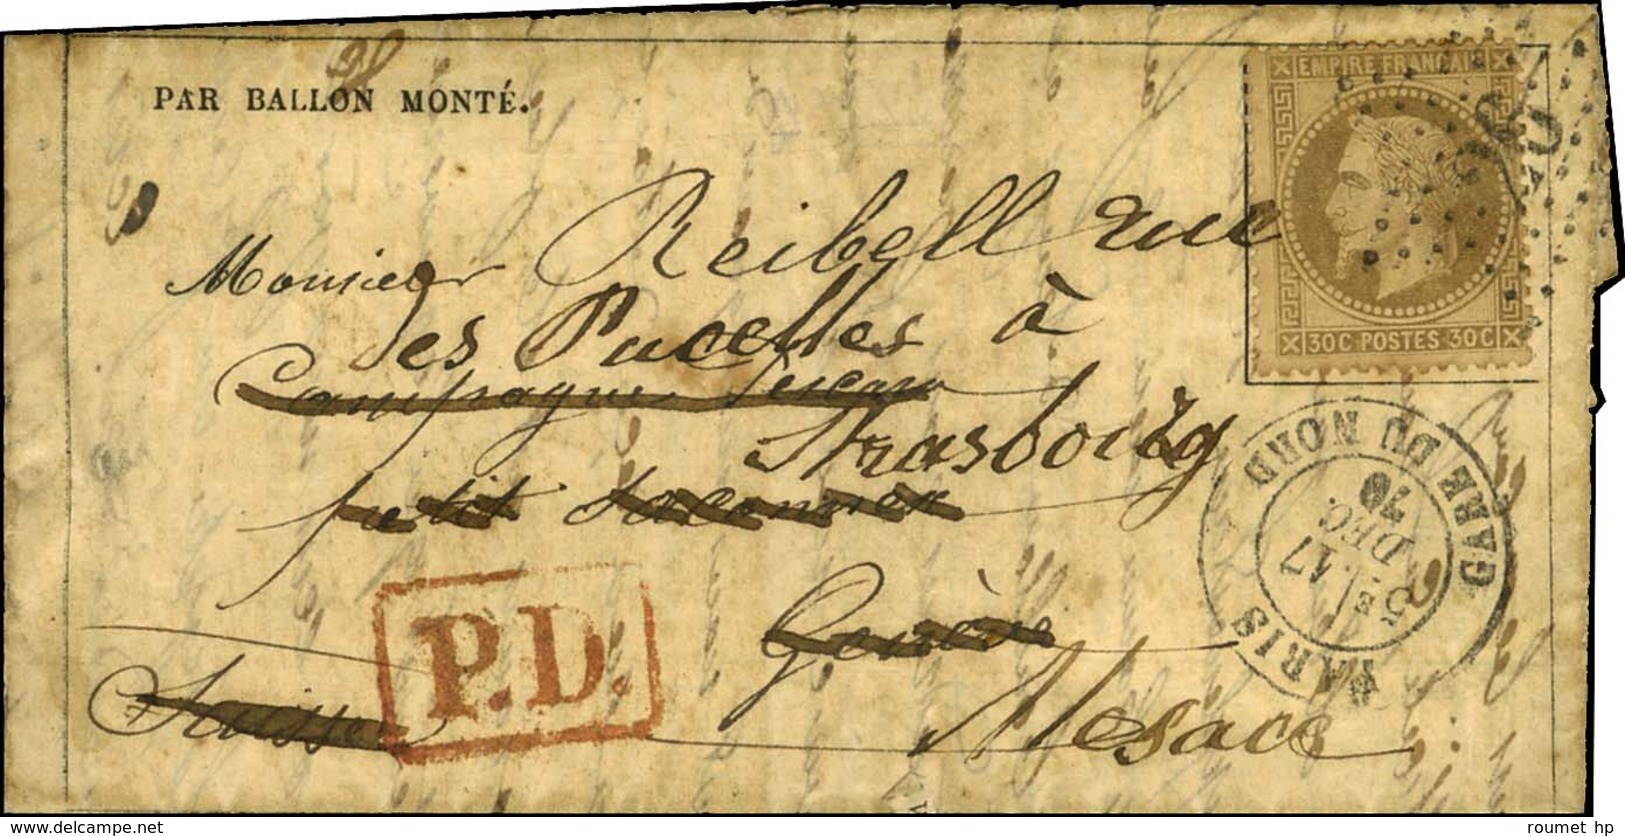 PAR BALLON MONTÉ.
EMPIRE FRANÇAIS
30C POSTES 30C
Monsieur Reibell rue
des Pucelles à
Campagne
Strasbourg
petit Saconnex
Genève
Suisse
Alsace
P.D.
PARIS GARE DU NORD
5E
17
DEC.
70
roumet hp
www.delcampe.net